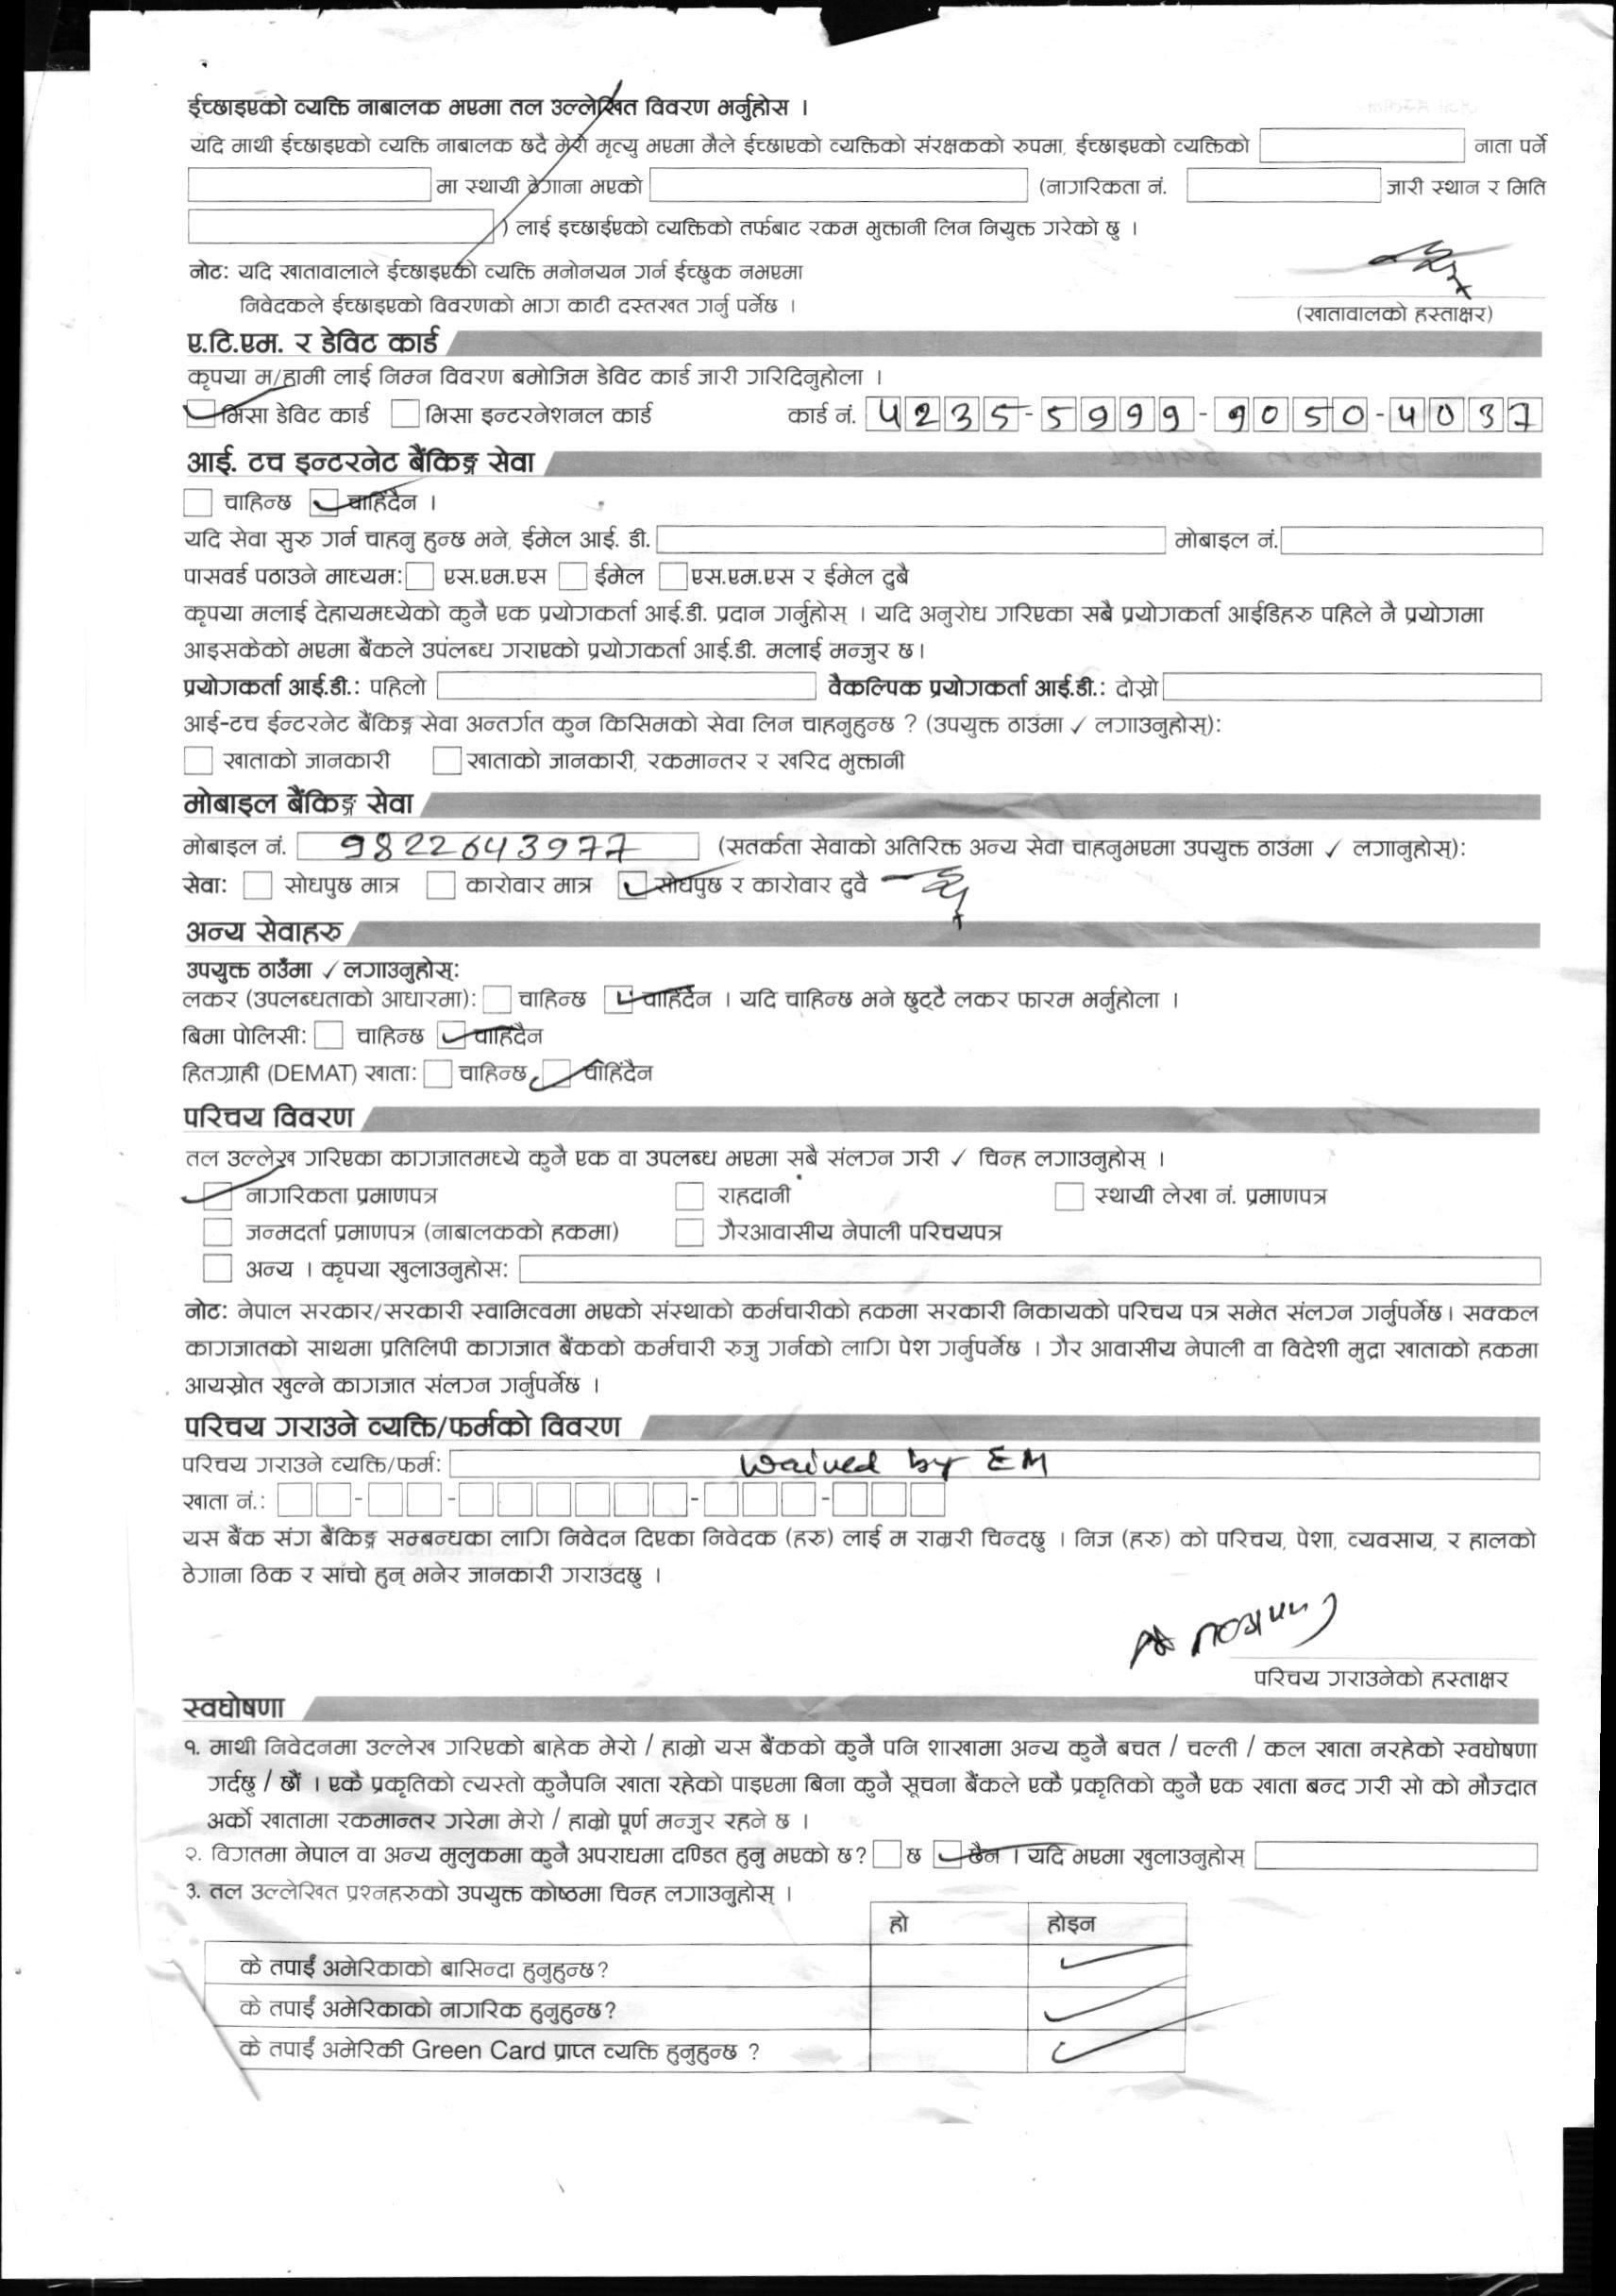 ईच्छाइएको व्यक्ति नाबालक भएमा तल उल्लेखित विवरण भर्नुहोस ।
यदि माथी ईच्छाइएको व्यक्ति नाबालक छदै मेरो मृत्यु भएमा मैले ईच्छाएको व्यक्तिको संरक्षकको रुपमा, ईच्छाइएको व्यक्तिको नाता पर्ने
मा स्थायी ठेगाना भएको (नागरिकता नं. जारी स्थान र मिति
) लाई इच्छाईएको व्यक्तिको तर्फबाट रकम भुक्तानी लिन नियुक्त गरेको छु ।
नोट: यदि खातावालाले ईच्छाइएको व्यक्ति मनोनयन गर्न ईच्छुक नभएमा
निवेदकले ईच्छाइएको विवरणको भाग काटी दस्तखत गर्नु पर्नेछ ।
(खातावालको हस्ताक्षर)
ए.टि.एम. र डेविट कार्ड
कृपया म/हामी लाई निम्न विवरण बमोजिम डेविट कार्ड जारी गरिदिनुहोला ।
भिसा डेविट कार्ड भिसा इन्टरनेशनल कार्ड कार्ड नं. 4235-5999-9050-4037
आई. टच इन्टरनेट बैंकिङ्ग सेवा
चाहिन्छ चाहिंदैन ।
यदि सेवा सुरु गर्न चाहनु हुन्छ भने, ईमेल आई. डी. मोबाइल नं.
पासवर्ड पठाउने माध्यम: एस.एम.एस ईमेल एस.एम.एस र ईमेल दुबै
कृपया मलाई देहायमध्येको कुनै एक प्रयोगकर्ता आई.डी. प्रदान गर्नुहोस् । यदि अनुरोध गरिएका सबै प्रयोगकर्ता आईडिहरु पहिले नै प्रयोगमा
आइसकेको भएमा बैंकले उपलब्ध गराएको प्रयोगकर्ता आई.डी. मलाई मन्जुर छ।
प्रयोगकर्ता आई.डी.: पहिलो वैकल्पिक प्रयोगकर्ता आई.डी.: दोस्रो
आई-टच ईन्टरनेट बैंकिङ्ग सेवा अन्तर्गत कुन किसिमको सेवा लिन चाहनुहुन्छ ? (उपयुक्त ठाउंमा ✓ लगाउनुहोस्):
खाताको जानकारी खाताको जानकारी, रकमान्तर र खरिद भुक्तानी
मोबाइल बैंकिङ्ग सेवा
मोबाइल नं. 9822643977 (सतर्कता सेवाको अतिरिक्त अन्य सेवा चाहनुभएमा उपयुक्त ठाउंमा ✓ लगानुहोस्):
सेवा: सोधपुछ मात्र कारोवार मात्र सोधपुछ र कारोवार दुवै
अन्य सेवाहरु
उपयुक्त ठाउँमा ✓ लगाउनुहोस्:
लकर (उपलब्धताको आधारमा): चाहिन्छ चाहिंदैन । यदि चाहिन्छ भने छुट्टै लकर फारम भर्नुहोला ।
बिमा पोलिसी: चाहिन्छ चाहिंदैन
हितग्राही (DEMAT) खाता: चाहिन्छ चाहिंदैन
परिचय विवरण
तल उल्लेख गरिएका कागजातमध्ये कुनै एक वा उपलब्ध भएमा सबै संलग्न गरी ✓ चिन्ह लगाउनुहोस् ।
नागरिकता प्रमाणपत्र राहदानी स्थायी लेखा नं. प्रमाणपत्र
जन्मदर्ता प्रमाणपत्र (नाबालकको हकमा) गैरआवासीय नेपाली परिचयपत्र
अन्य । कृपया खुलाउनुहोस:
नोट: नेपाल सरकार/सरकारी स्वामित्वमा भएको संस्थाको कर्मचारीको हकमा सरकारी निकायको परिचय पत्र समेत संलग्न गर्नुपर्नेछ। सक्कल
कागजातको साथमा प्रतिलिपी कागजात बैंकको कर्मचारी रुजु गर्नको लागि पेश गर्नुपर्नेछ । गैर आवासीय नेपाली वा विदेशी मुद्रा खाताको हकमा
आयस्रोत खुल्ने कागजात संलग्न गर्नुपर्नेछ ।
परिचय गराउने व्यक्ति/फर्मको विवरण
परिचय गराउने व्यक्ति/फर्म: waived by EM
खाता नं.:
यस बैंक संग बैंकिङ्ग सम्बन्धका लागि निवेदन दिएका निवेदक (हरु) लाई म राम्ररी चिन्दछु । निज (हरु) को परिचय, पेशा, व्यवसाय, र हालको
ठेगाना ठिक र सांचो हुन् भनेर जानकारी गराउंदछु ।
परिचय गराउनेको हस्ताक्षर
स्वघोषणा
१. माथी निवेदनमा उल्लेख गरिएको बाहेक मेरो / हाम्रो यस बैंकको कुनै पनि शाखामा अन्य कुनै बचत / चल्ती / कल खाता नरहेको स्वघोषणा
गर्दछु / छौं । एकै प्रकृतिको त्यस्तो कुनैपनि खाता रहेको पाइएमा बिना कुनै सूचना बैंकले एकै प्रकृतिको कुनै एक खाता बन्द गरी सो को मौज्दात
अर्को खातामा रकमान्तर गरेमा मेरो / हाम्रो पूर्ण मन्जुर रहने छ ।
२. विगतमा नेपाल वा अन्य मुलुकमा कुनै अपराधमा दण्डित हुनु भएको छ? छ छैन । यदि भएमा खुलाउनुहोस्
३. तल उल्लेखित प्रश्नहरुको उपयुक्त कोष्ठमा चिन्ह लगाउनुहोस् ।
हो होइन
के तपाईं अमेरिकाको बासिन्दा हुनुहुन्छ? ✓
के तपाईं अमेरिकाको नागरिक हुनुहुन्छ? ✓
के तपाईं अमेरिकी Green Card प्राप्त व्यक्ति हुनुहुन्छ ? ✓